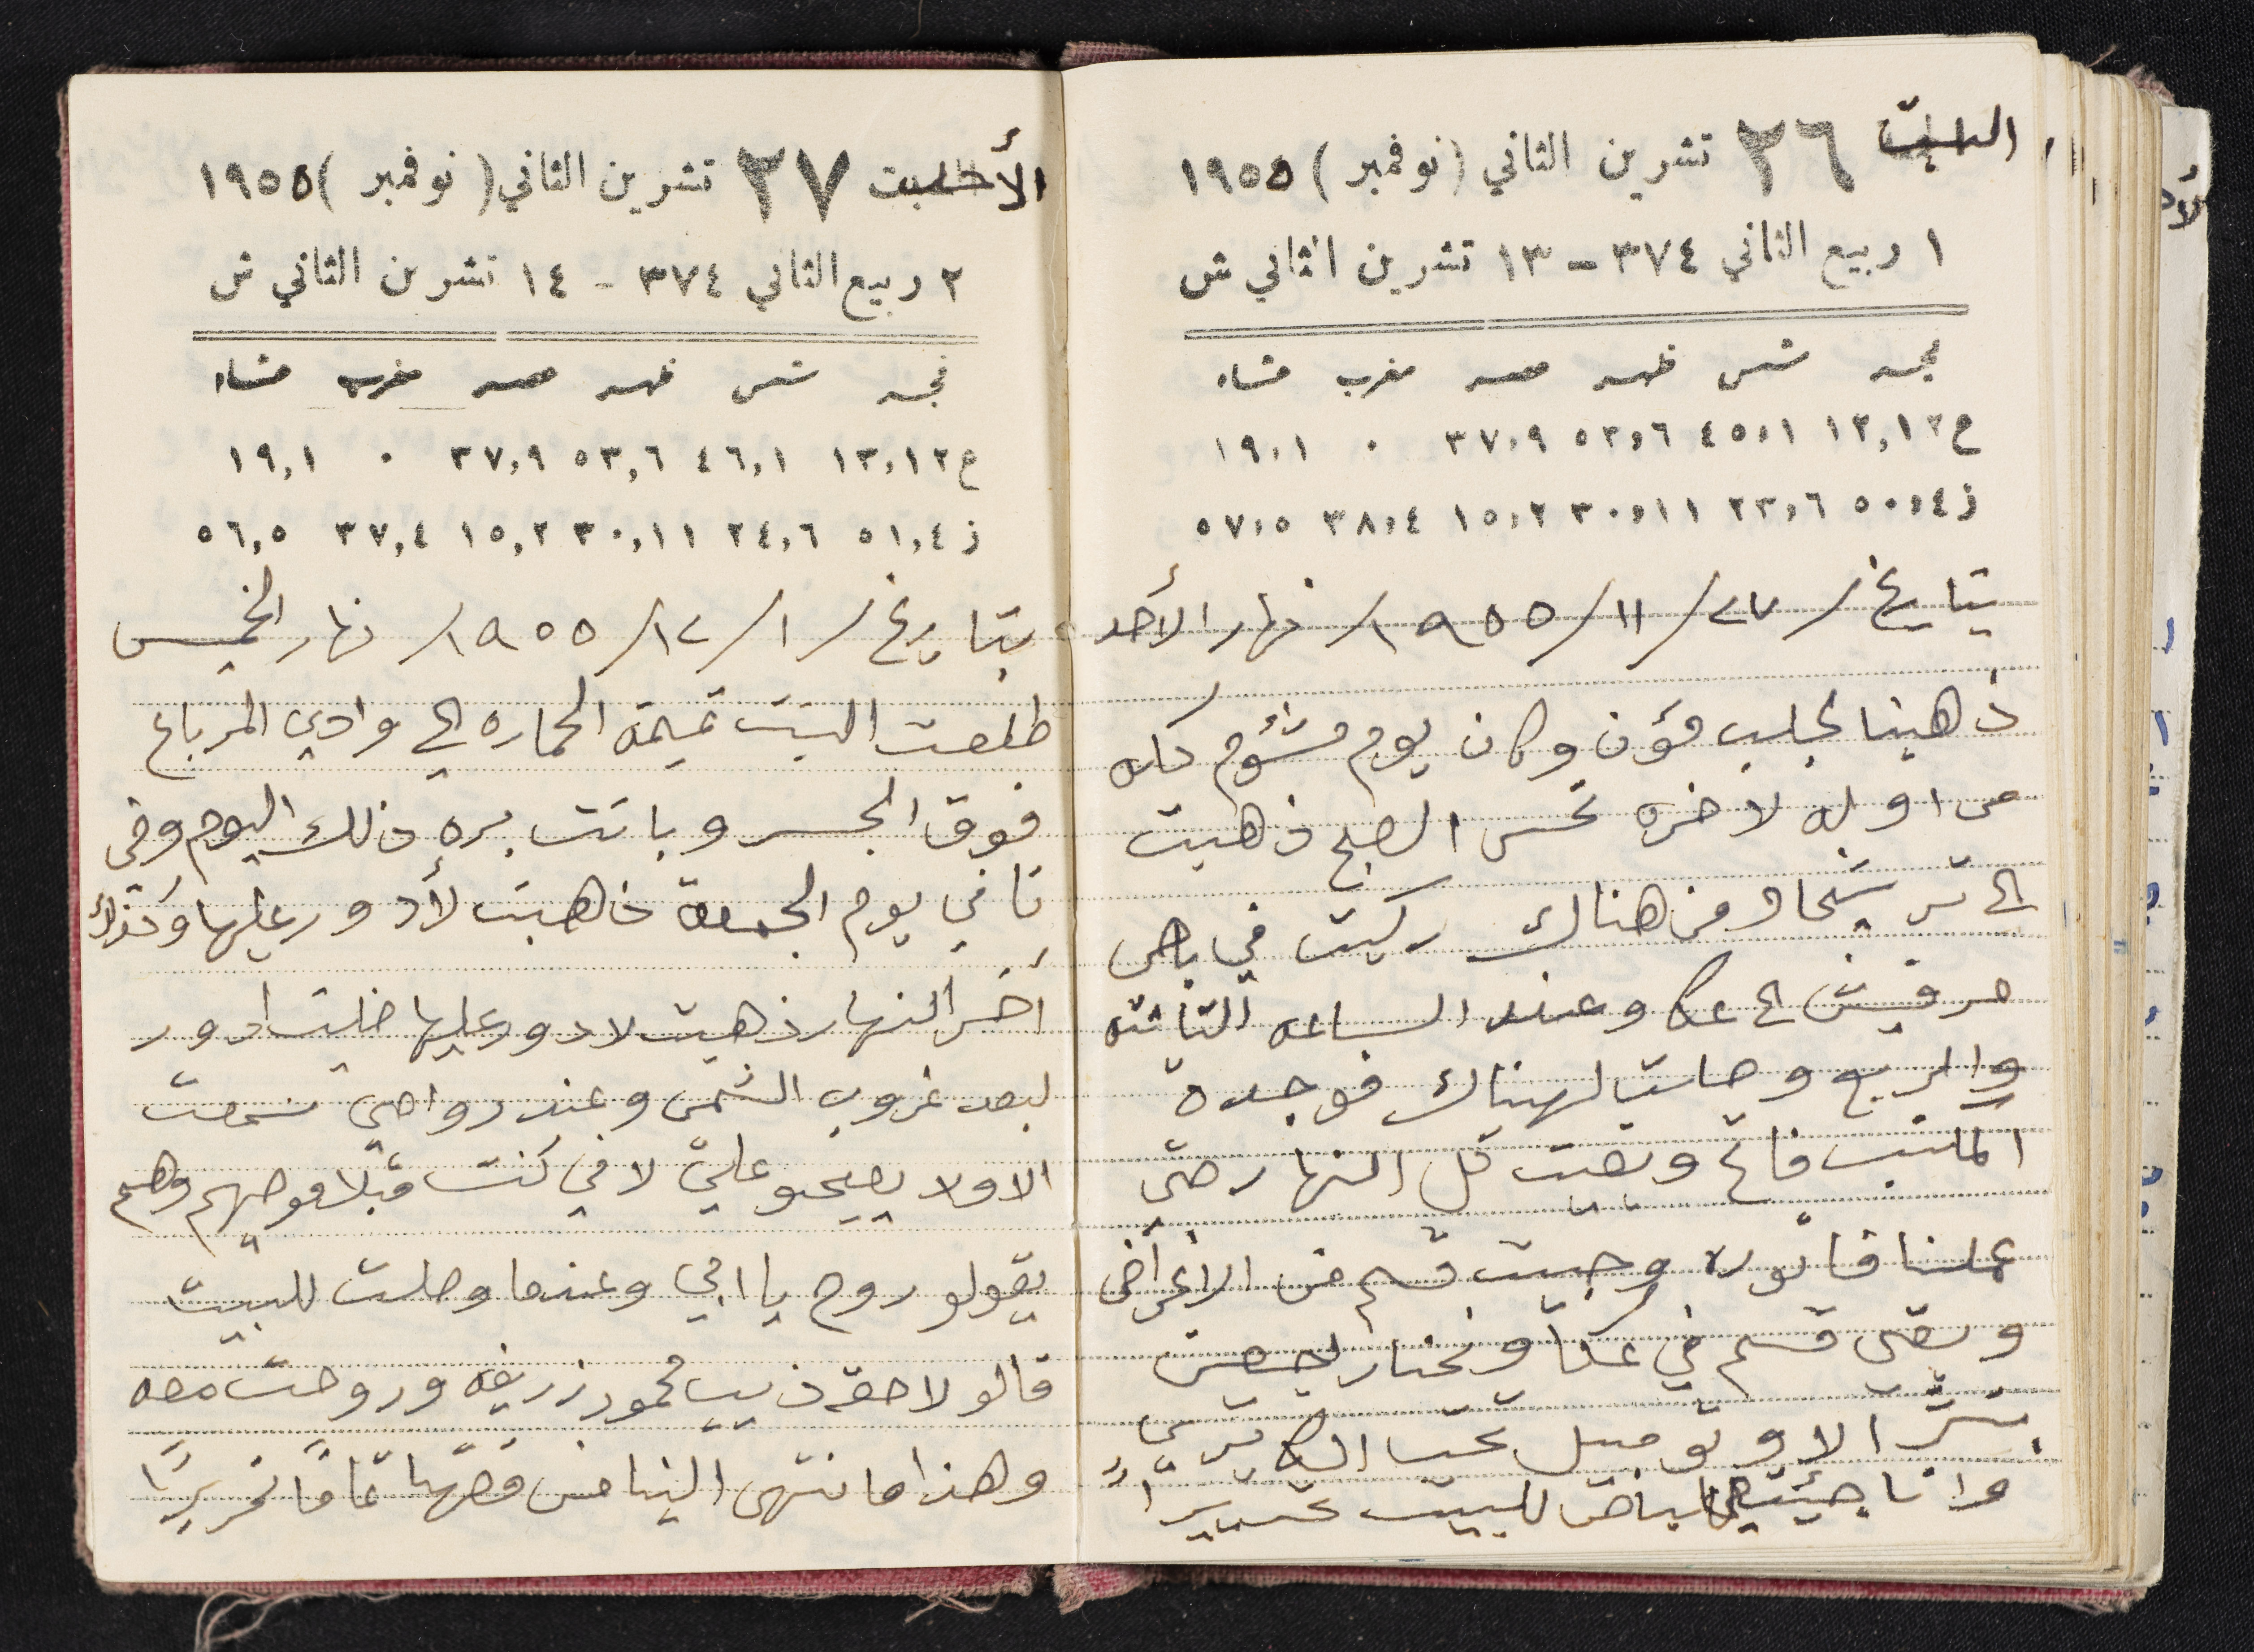 السبت ٢٦ تشرين الثاني (نوفمبر) ١٩٥٥
١ ربيع الثاني ٣٧٤ - ١٣ تشرين الثاني ش
فجر شمس ظهر عصر مغرب عشاء
ع ١٢,١٢ ٤٥,١ ٥٣,٦ ٣٧,٩ ٠ ١٩,١
ز ٥٠,٤ ٢٣,٦ ٣٠,١١ ١٥,٢ ٣٨,٤ ٥٧,٥
بتاريخ / ٢٧ / ١١ / ١٩٥٥ / نهار الأحد
ذهبنا لجلب مؤن وكان يوم مشؤم كله
من اوله لاخره نحس الصبح ذهبت
الى ترشيحا ومن هناك ركبت في باص
الى عكا وعند الساعه الثامنه
والربع وصلت لهناك فوجدة
المكتب فاتح وبقيت كل النهار حتى
عملنا فاتوره وجبت قسم من الاغراض
وبقي قسم في عكا
الاوتوموبيل تحت
وانا جئت للبيت
الأحد ٢٧ تشرين الثاني (نوفمبر) ١٩٥٥
٢ ربيع الثاني ٣٧٤ - ١٤ تشرين الثاني ش
فجر شمس ظهر عصر مغرب عشاء
ع ١٣,١٢ ٤٦,١ ٥٣,٦ ٣٧,٩ ٠ ١٩,١
ز ٥١,٤ ٢٤,٦ ٣٠,١١ ١٥,٢ ٣٧,٤ ٥٦,٥
بتاريخ / ١ / ١٢ / ١٩٥٥ / نهار الخميس
طلعت الحماره الى وادي المرباع
فوق الجسر وباتت بره ذلك اليوم وفي
ثاني يوم الجمعة ذهبت لأدور عليها وكذلك
أخر النهار ذهبت لادور عليها ظليت ادور
لبعد غروب الشمس وعند رواحي سمعت
الاولاد يصيحو عليّ لاني كنت وهم
يقولو روح يا ابي وعندما وصلت للبيت
قالو ذيب محمود زريقه وروحت معه
وهذا ما انتهى الينا من قصتها تماماً تحريرًا